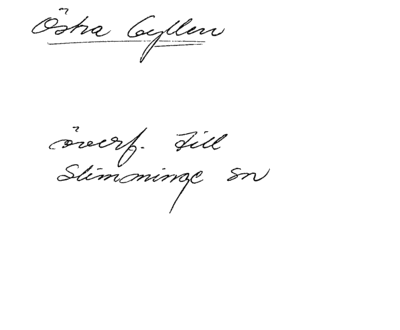 Östra Gyllen
överf. till
Slimminge sn